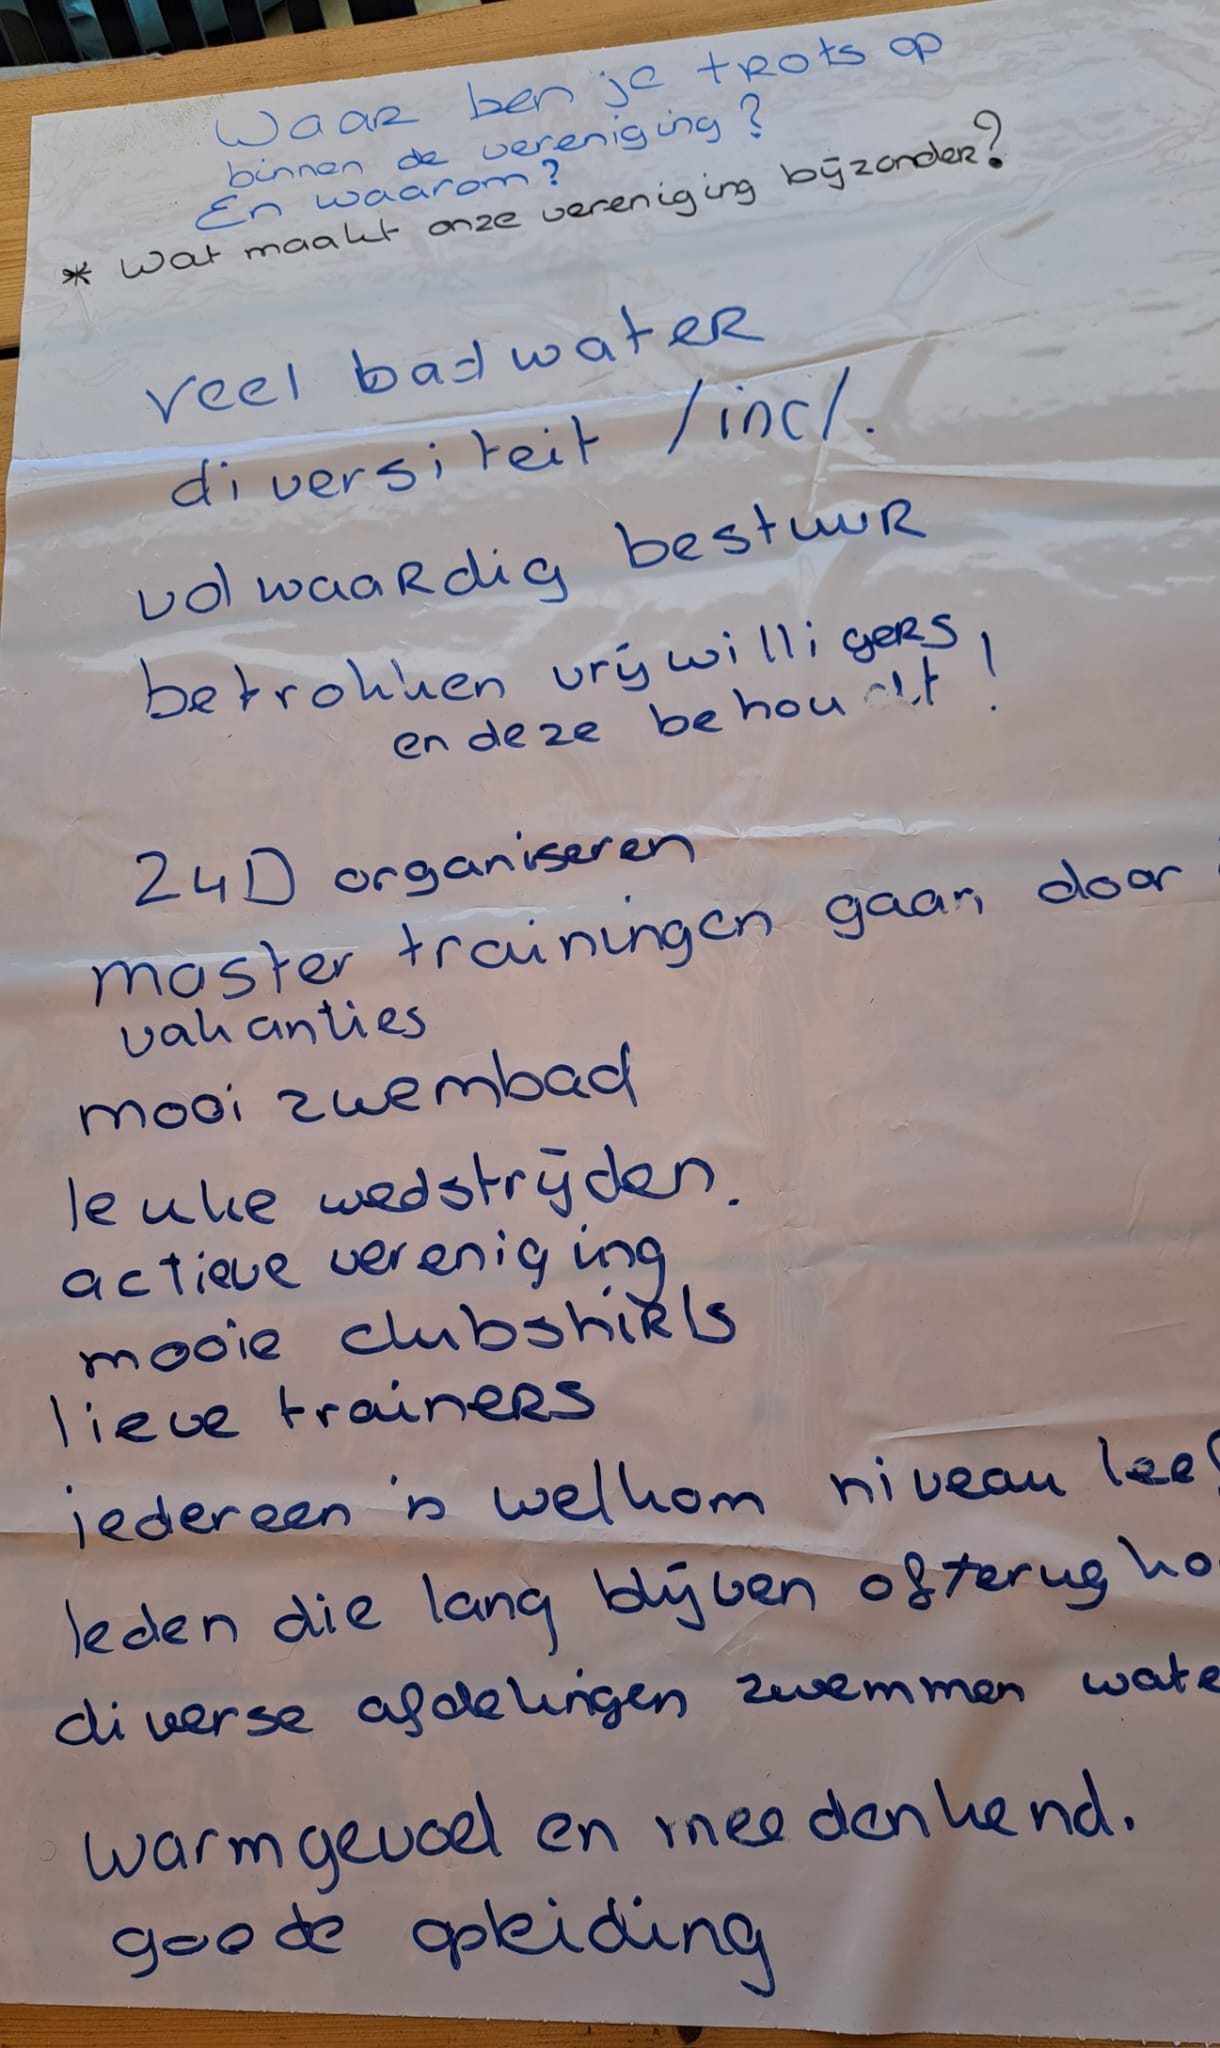 Waar ben je trots op
binnen de vereniging?
En waarom?
* Wat maakt onze vereniging bijzonder?
veel badwater
diversiteit /incl.
volwaardig bestuur
betrokken vrijwilligers,
en deze behoudt!
24D organiseren
master trainingen gaan door
vakanties
mooi zwembad
leuke wedstrijden.
actieve vereniging
mooie clubshirts
lieve trainers
iedereen is welkom niveau leef
leden die lang blijven of terug ko
diverse afdelingen zwemmen wate
warm gevoel en meedenkend.
goede opleiding